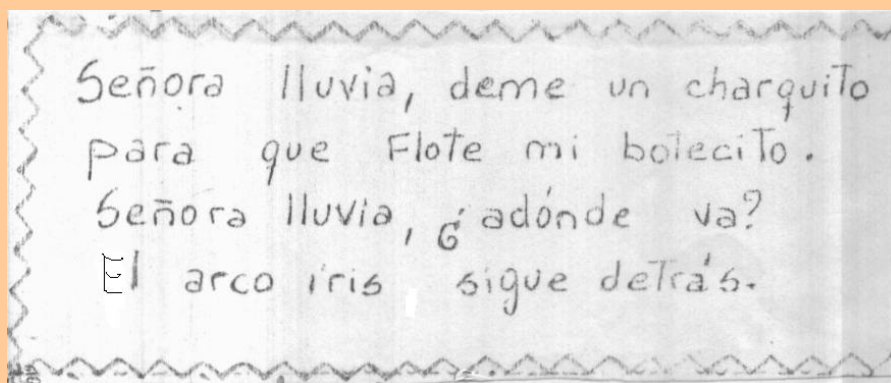 Señora lluvia, deme un charquito
para que Flote mi botecito.
Señora lluvia, ¿adónde va?
El arco íris sigue detrás.